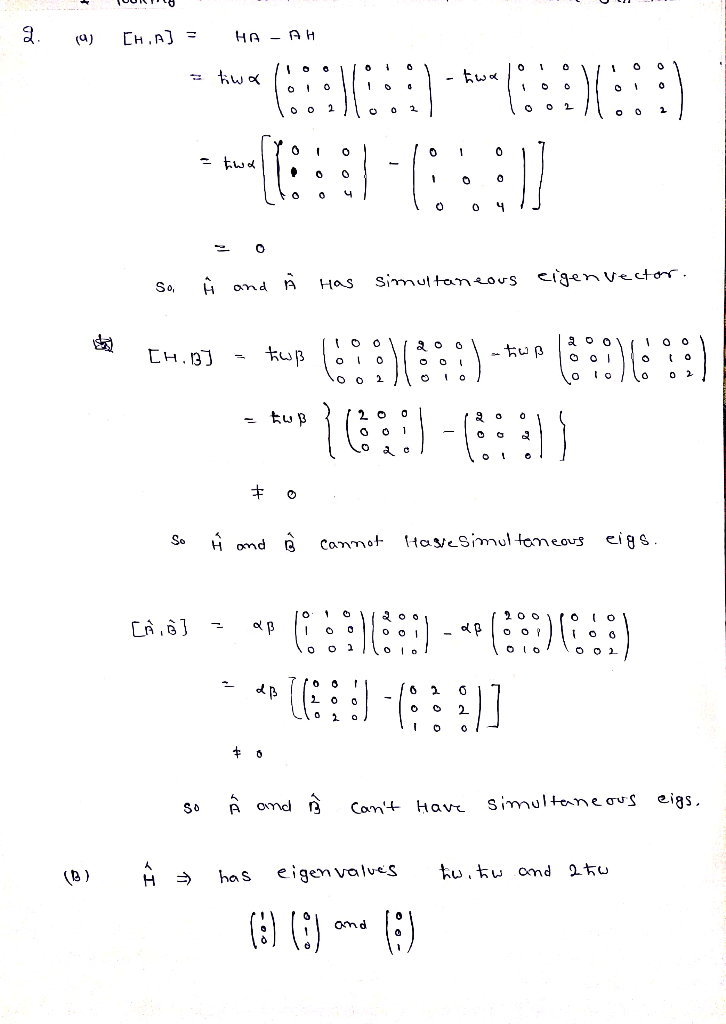 2. (a) [H,A] = HA - AH
= ħωα (1 0 0 / 0 1 0 / 0 0 2) (0 1 0 / 1 0 0 / 0 0 2) - ħωα (0 1 0 / 1 0 0 / 0 0 2) (1 0 0 / 0 1 0 / 0 0 2)
= ħωα [(0 1 0 / 1 0 0 / 0 0 4) - (0 1 0 / 1 0 0 / 0 0 4)]
= 0
So, Ĥ and Â Has simultaneous eigenvector.
[H,B] = ħωβ (1 0 0 / 0 1 0 / 0 0 2) (2 0 0 / 0 0 1 / 0 1 0) - ħωβ (2 0 0 / 0 0 1 / 0 1 0) (1 0 0 / 0 1 0 / 0 0 2)
= ħωβ {(2 0 0 / 0 0 1 / 0 2 0) - (2 0 0 / 0 0 2 / 0 1 0)}
≠ 0
So Ĥ and B̂ cannot Have simultaneous eigs.
[Â,B̂] = αβ (0 1 0 / 1 0 0 / 0 0 2) (2 0 0 / 0 0 1 / 0 1 0) - αβ (2 0 0 / 0 0 1 / 0 1 0) (0 1 0 / 1 0 0 / 0 0 2)
= αβ [(0 0 1 / 2 0 0 / 0 2 0) - (0 2 0 / 0 0 2 / 1 0 0)]
≠ 0
So Â and B̂ can't Have simultaneous eigs.
(B) Ĥ ⇒ has eigenvalues ħω, ħω and 2ħω
(1 / 0 / 0) (0 / 1 / 0) and (0 / 0 / 1)